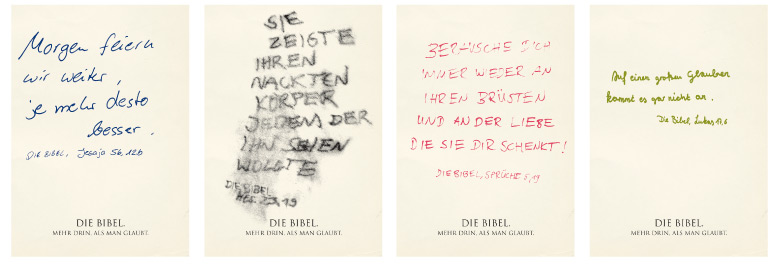 Morgen feiern
wir weiter,
je mehr desto
besser.
DIE BIBEL, Jesaja 56,12b
DIE BIBEL.
MEHR DRIN, ALS MAN GLAUBT.
SIE
ZEIGTE
IHREN
NACKTEN
KÖRPER
JEDEM DER
IHN SEHEN
WOLLTE
DIE BIBEL
HES. 23,19
DIE BIBEL.
MEHR DRIN, ALS MAN GLAUBT.
BERAUSCHE DICH
IMMER WIEDER AN
IHREN BRÜSTEN
UND AN DER LIEBE
DIE SIE DIR SCHENKT!
DIE BIBEL, SPRÜCHE 5,19
DIE BIBEL.
MEHR DRIN, ALS MAN GLAUBT.
Auf einen großen Glauben
kommt es gar nicht an.
Die Bibel, Lukas 17,6
DIE BIBEL.
MEHR DRIN, ALS MAN GLAUBT.